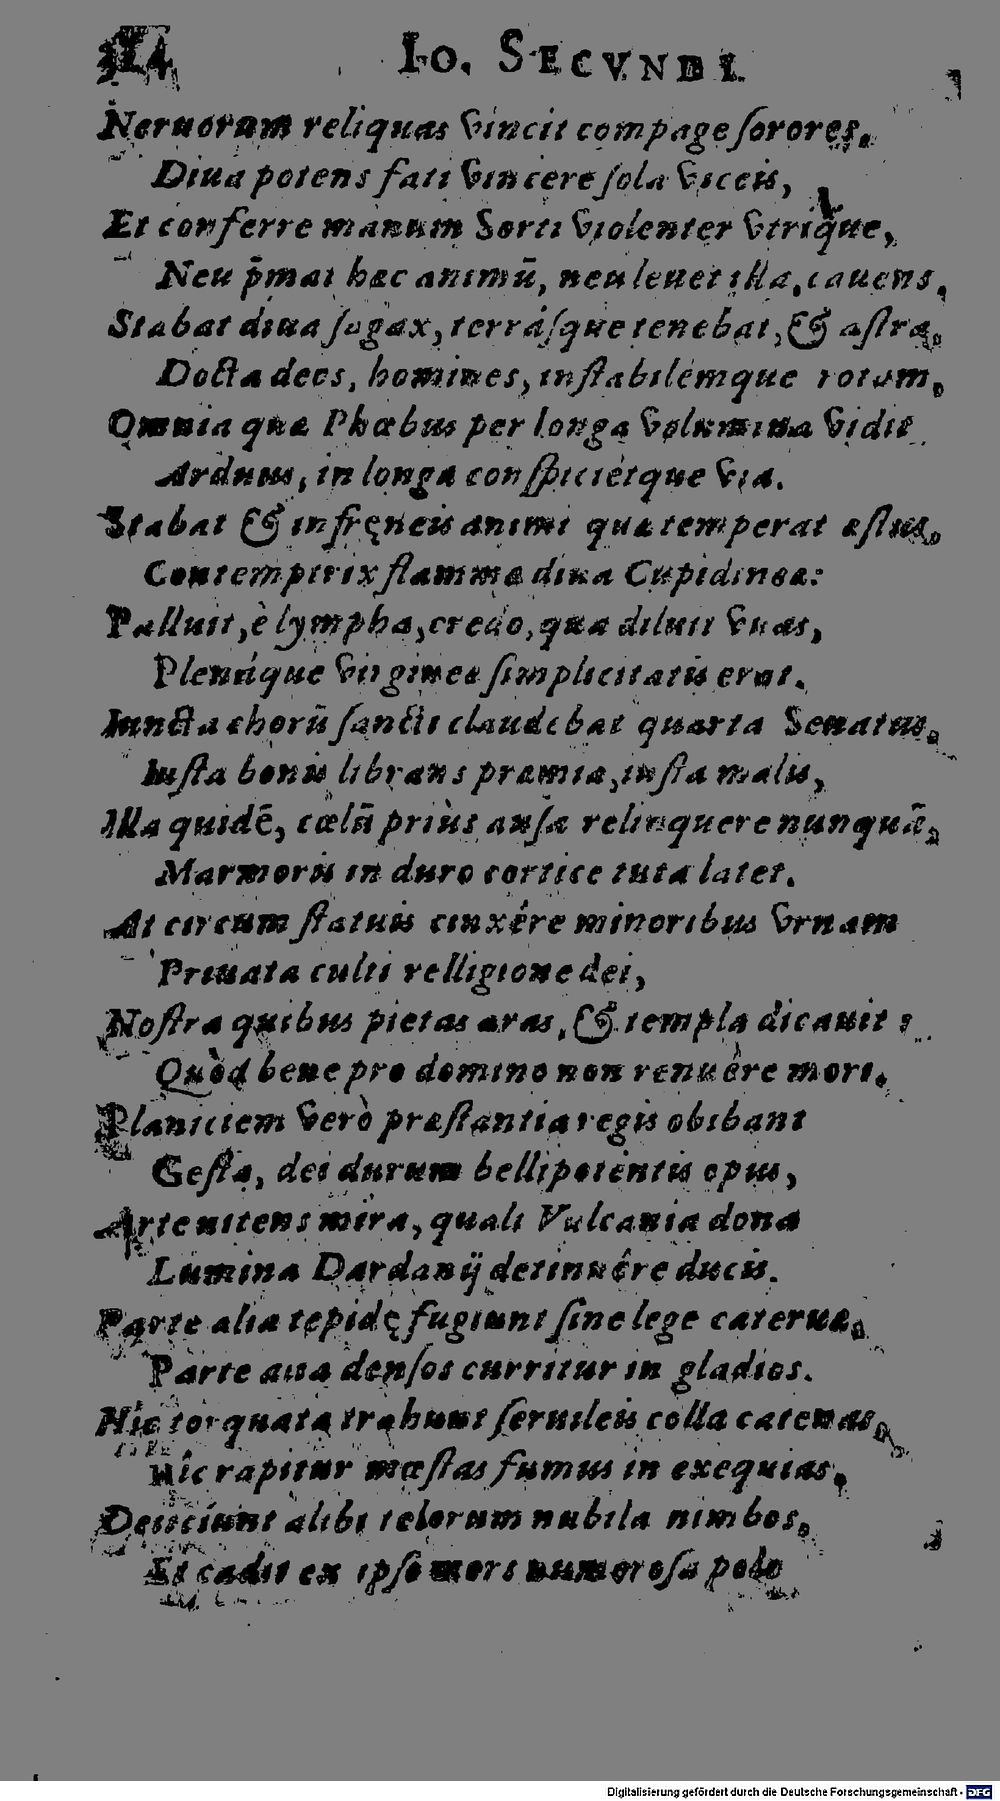 Io. SECVNDI
Neruorum reliquas vincit compage ſorores,
Diua potens fati vincere ſola viceis,
Et conferre manum Sorti violenter vtrique,
Neu p̄mat hæc animū, neu leuet illa, cauens.
Stabat diua ſagax, terráſque tenebat, & aſtra,
Docta deos, homines, inſtabilémque rotam,
Omnia quæ Phœbus per longa volumina vidit
Arduus, in longa conſpiciétque via.
Stabat & infręneis animi quæ temperat æſtus,
Contemptrix flammæ diua Cupidineæ:
Palluit, è lympha, credo, quæ diluit vuas,
Plenáque virgineæ ſimplicitatis erat.
Iuncta chorū ſancti claudebat quarta Senatus,
Iuſta bonis librans præmia, iuſta malis,
Illa quidē, cœlū priùs auſa relinquere nunquā,
Marmoris in duro cortice tuta latet.
At circum ſtatuis cinxére minoribus vrnam
Priuata culti relligione dei,
Noſtra quibus pietas aras, & templa dicauit:
Quòd bene pro domino non renuêre mori.
Planiciem verò præſtantia regis obibant
Geſta, dei durum bellipotentis opus,
Arte nitens mira, quali Vulcania dona
Lumina Dardanij detinuêre ducis.
Parte alia tepidę fugiunt ſine lege cateruæ,
Parte alia denſos curritur in gladios.
Hic torquata trahunt ſeruileis colla catenas,
Hic rapitur mœſtas fumus in exequias,
Deiiciunt alibi telorum nubila nimbos,
Et cadit ex ipſo mors numeroſa polo
Digitalisierung gefördert durch die Deutsche Forschungsgemeinschaft - DFG